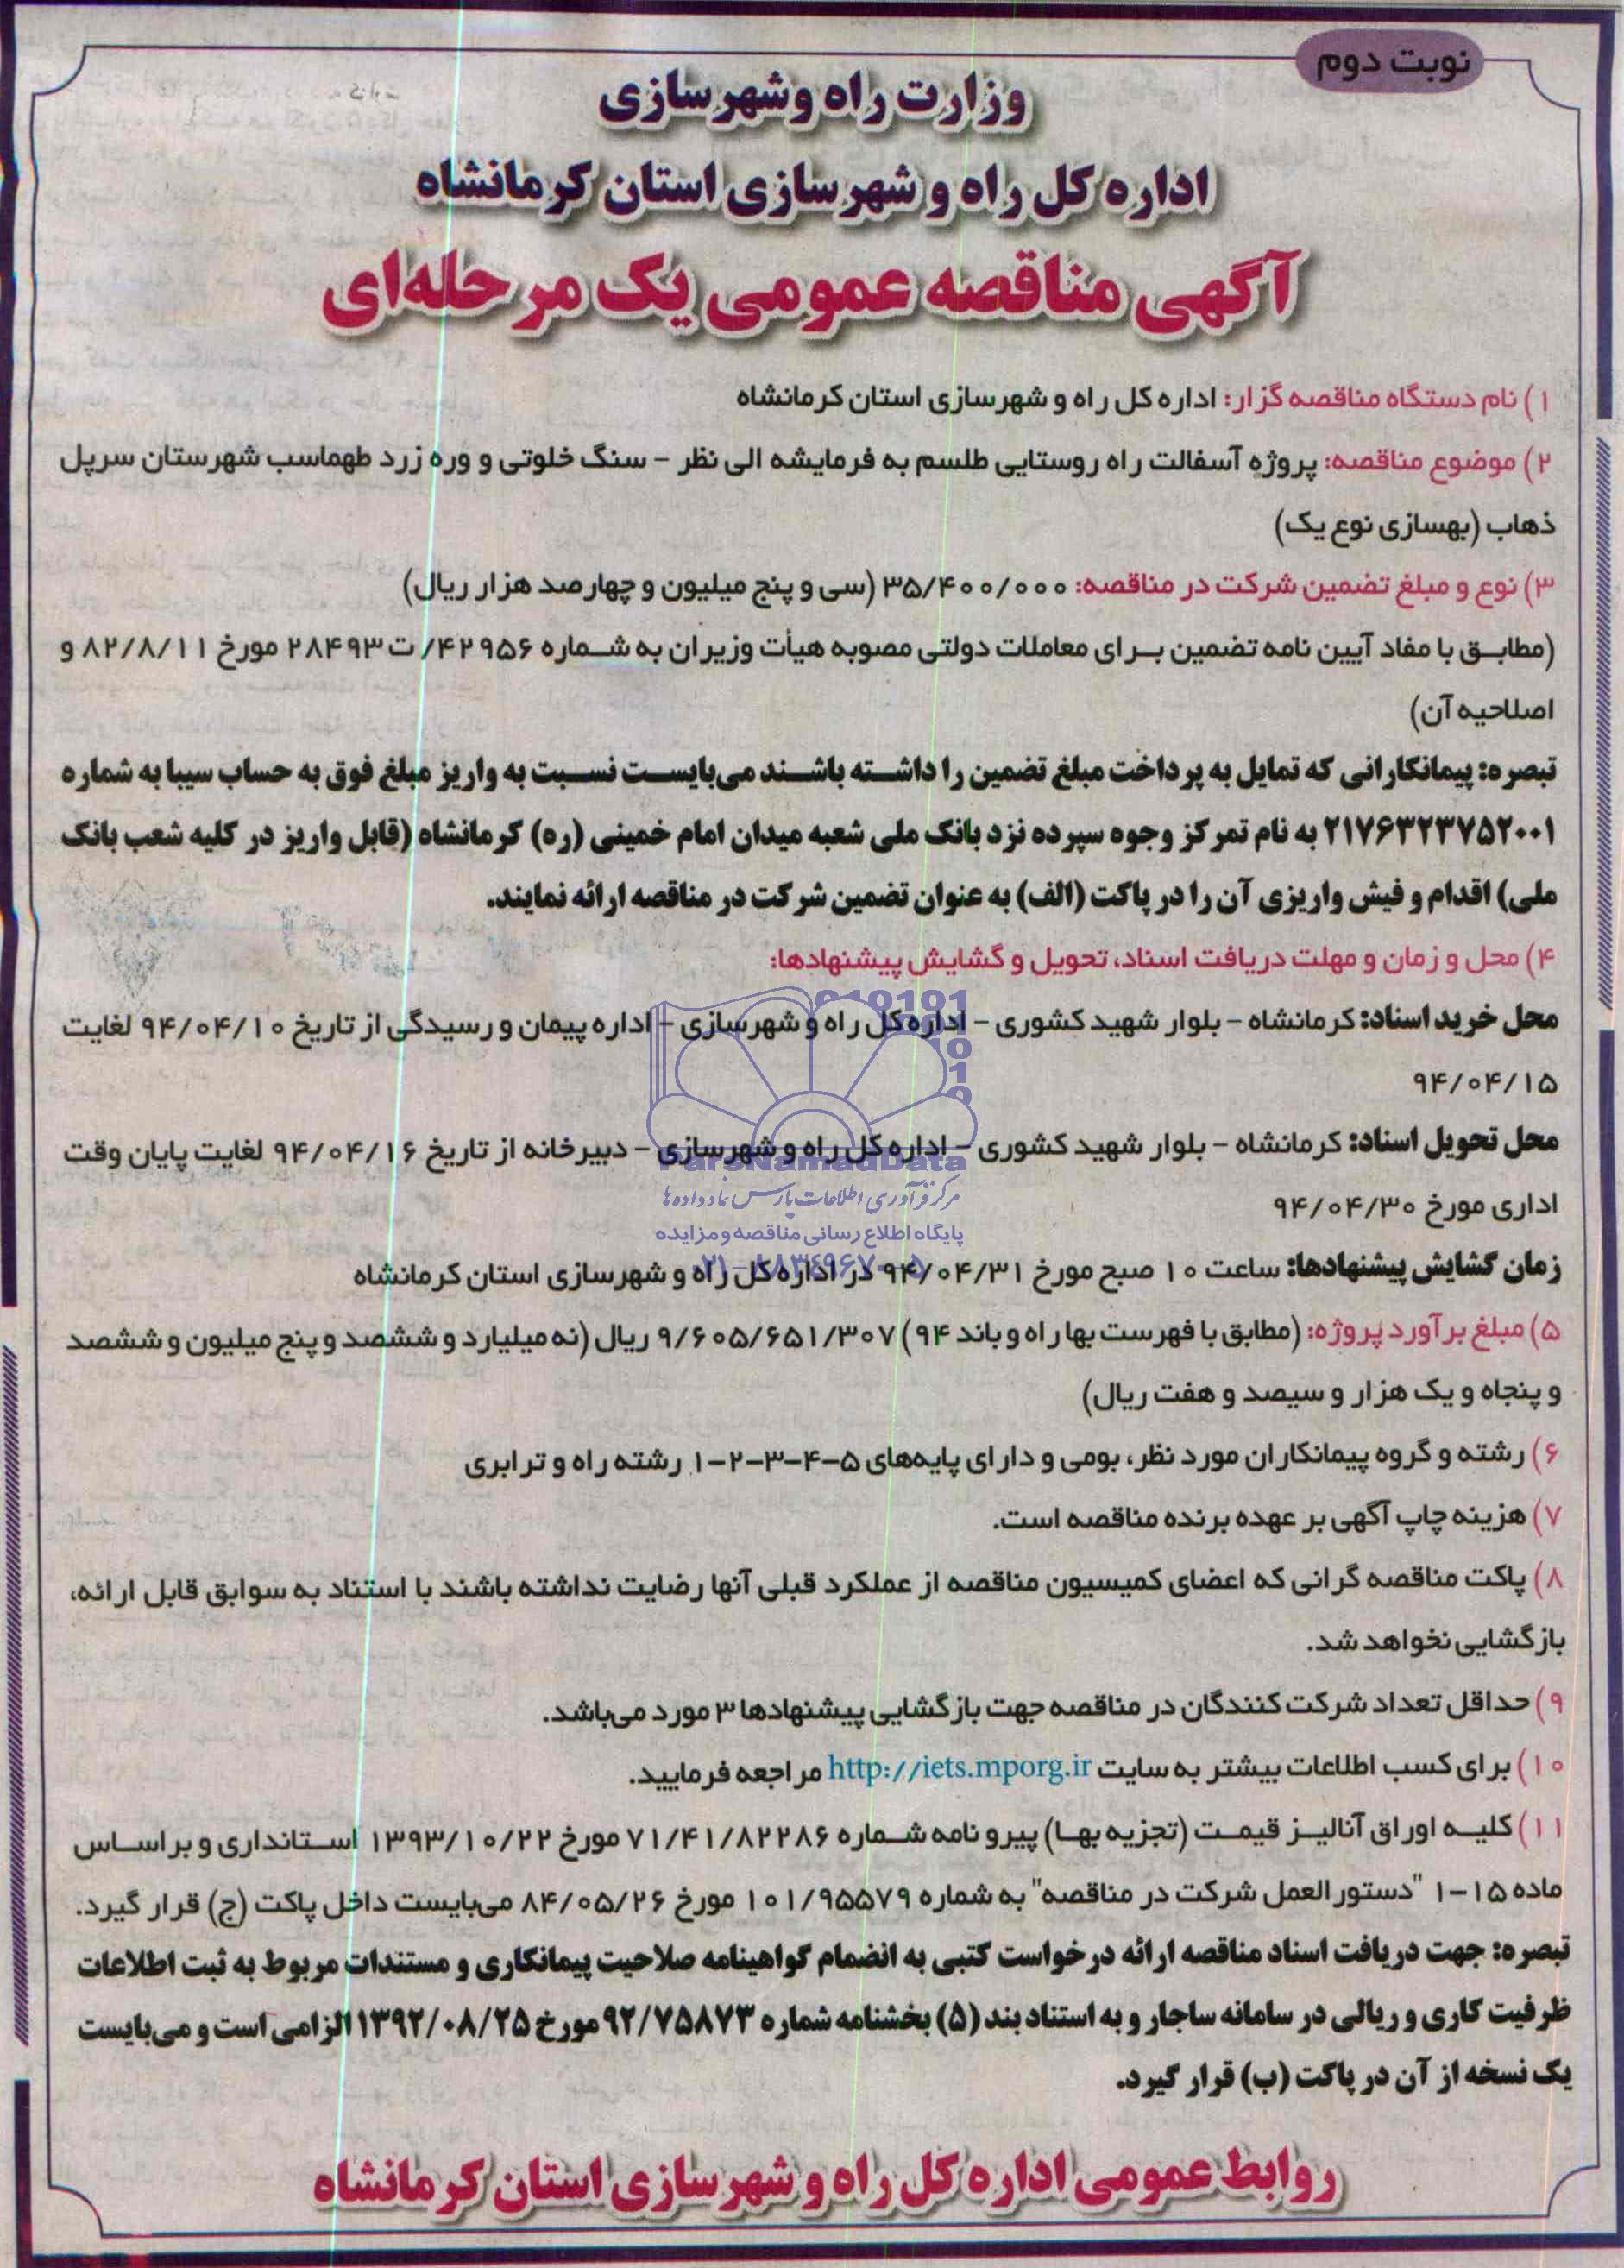 نوبت دوم
وزارت راه وشهرسازی
اداره کل راه و شهرسازی استان کرمانشاه
آگهی مناقصه عمومی یک مرحله‌ای
۱) نام دستگاه مناقصه گزار: اداره کل راه و شهرسازی استان کرمانشاه
۲) موضوع مناقصه: پروژه آسفالت راه روستایی طلسم به فرمایشه الی نظر – سنگ خلوتی و وره زرد طهماسب شهرستان سرپل
ذهاب (بهسازی نوع یک)
۳) نوع و مبلغ تضمین شرکت در مناقصه: ۳۵/۴۰۰/۰۰۰ (سی و پنج میلیون و چهارصد هزار ریال)
(مطابق با مفاد آیین نامه تضمین برای معاملات دولتی مصوبه هیأت وزیران به شماره ۴۲۹۵۶/ ت ۲۸۴۹۳ مورخ ۸۲/۸/۱۱ و
اصلاحیه آن)
تبصره: پیمانکارانی که تمایل به پرداخت مبلغ تضمین را داشته باشند می‌بایست نسبت به واریز مبلغ فوق به حساب سیبا به شماره
۲۱۷۶۳۲۳۷۵۲۰۰۱ به نام تمرکز وجوه سپرده نزد بانک ملی شعبه میدان امام خمینی (ره) کرمانشاه (قابل واریز در کلیه شعب بانک
ملی) اقدام و فیش واریزی آن را در پاکت (الف) به عنوان تضمین شرکت در مناقصه ارائه نمایند.
۴) محل و زمان و مهلت دریافت اسناد، تحویل و گشایش پیشنهادها:
محل خرید اسناد: کرمانشاه – بلوار شهید کشوری – اداره کل راه و شهرسازی – اداره پیمان و رسیدگی از تاریخ ۹۴/۰۴/۱۰ لغایت
۹۴/۰۴/۱۵
محل تحویل اسناد: کرمانشاه – بلوار شهید کشوری – اداره کل راه و شهرسازی – دبیرخانه از تاریخ ۹۴/۰۴/۱۶ لغایت پایان وقت
ParsNamadData
مرکز فرآوری اطلاعات پارس نماد داده ها
اداری مورخ ۹۴/۰۴/۳۰
پایگاه اطلاع رسانی مناقصه و مزایده
۰۲۱-۸۸۳۴۹۶۷۰-۵
زمان گشایش پیشنهادها: ساعت ۱۰ صبح مورخ ۹۴/۰۴/۳۱ در اداره کل راه و شهرسازی استان کرمانشاه
۵) مبلغ برآورد پروژه: (مطابق با فهرست بها راه و باند ۹۴) ۹/۶۰۵/۶۵۱/۳۰۷ ریال (نه میلیارد و ششصد و پنج میلیون و ششصد
و پنجاه و یک هزار و سیصد و هفت ریال)
۶) رشته و گروه پیمانکاران مورد نظر، بومی و دارای پایه‌های ۵-۴-۳-۲-۱ رشته راه و ترابری
۷) هزینه چاپ آگهی بر عهده برنده مناقصه است.
۸) پاکت مناقصه گرانی که اعضای کمیسیون مناقصه از عملکرد قبلی آنها رضایت نداشته باشند با استناد به سوابق قابل ارائه،
بازگشایی نخواهد شد.
۹) حداقل تعداد شرکت کنندگان در مناقصه جهت بازگشایی پیشنهادها ۳ مورد می‌باشد.
۱۰) برای کسب اطلاعات بیشتر به سایت http://iets.mporg.ir مراجعه فرمایید.
۱۱) کلیه اوراق آنالیز قیمت (تجزیه بها) پیرو نامه شماره ۷۱/۴۱/۸۲۲۸۶ مورخ ۱۳۹۳/۱۰/۲۲ استانداری و براساس
ماده ۱۵-۱ "دستورالعمل شرکت در مناقصه" به شماره ۱۰۱/۹۵۵۷۹ مورخ ۸۴/۰۵/۲۶ می‌بایست داخل پاکت (ج) قرار گیرد.
تبصره: جهت دریافت اسناد مناقصه ارائه درخواست کتبی به انضمام گواهینامه صلاحیت پیمانکاری و مستندات مربوط به ثبت اطلاعات
ظرفیت کاری و ریالی در سامانه ساجار و به استناد بند (۵) بخشنامه شماره ۹۲/۷۵۸۷۳ مورخ ۱۳۹۲/۰۸/۲۵ الزامی است و می‌بایست
یک نسخه از آن در پاکت (ب) قرار گیرد.
روابط عمومی اداره کل راه و شهرسازی استان کرمانشاه